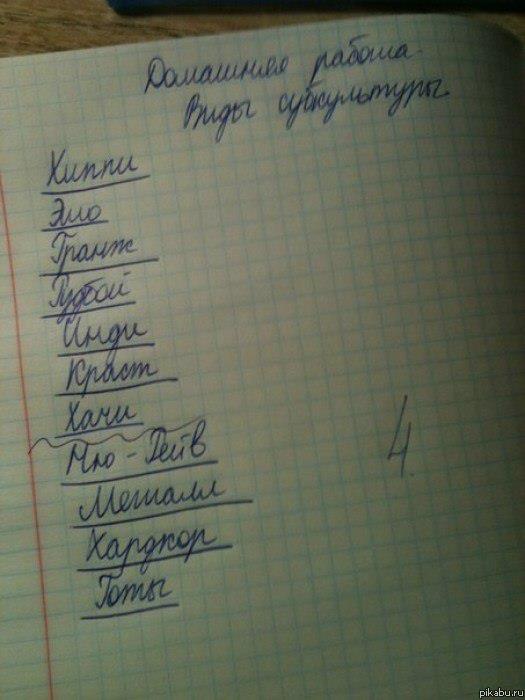 Домашняя работа.
Виды субкультуры.
Хиппи
Эмо
Гранж
Рудбой
Инди
Краст
Хачи
Ню-Вейв
Металл
Хардкор
Готы
4
pikabu.ru